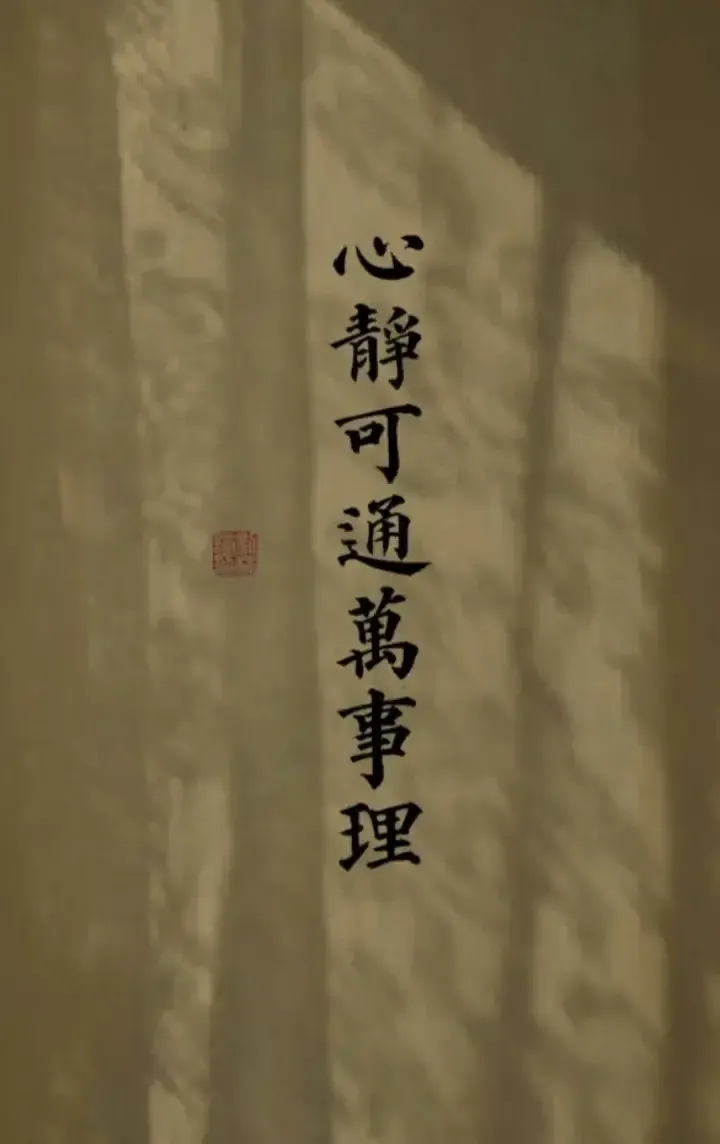 心靜可通萬事理